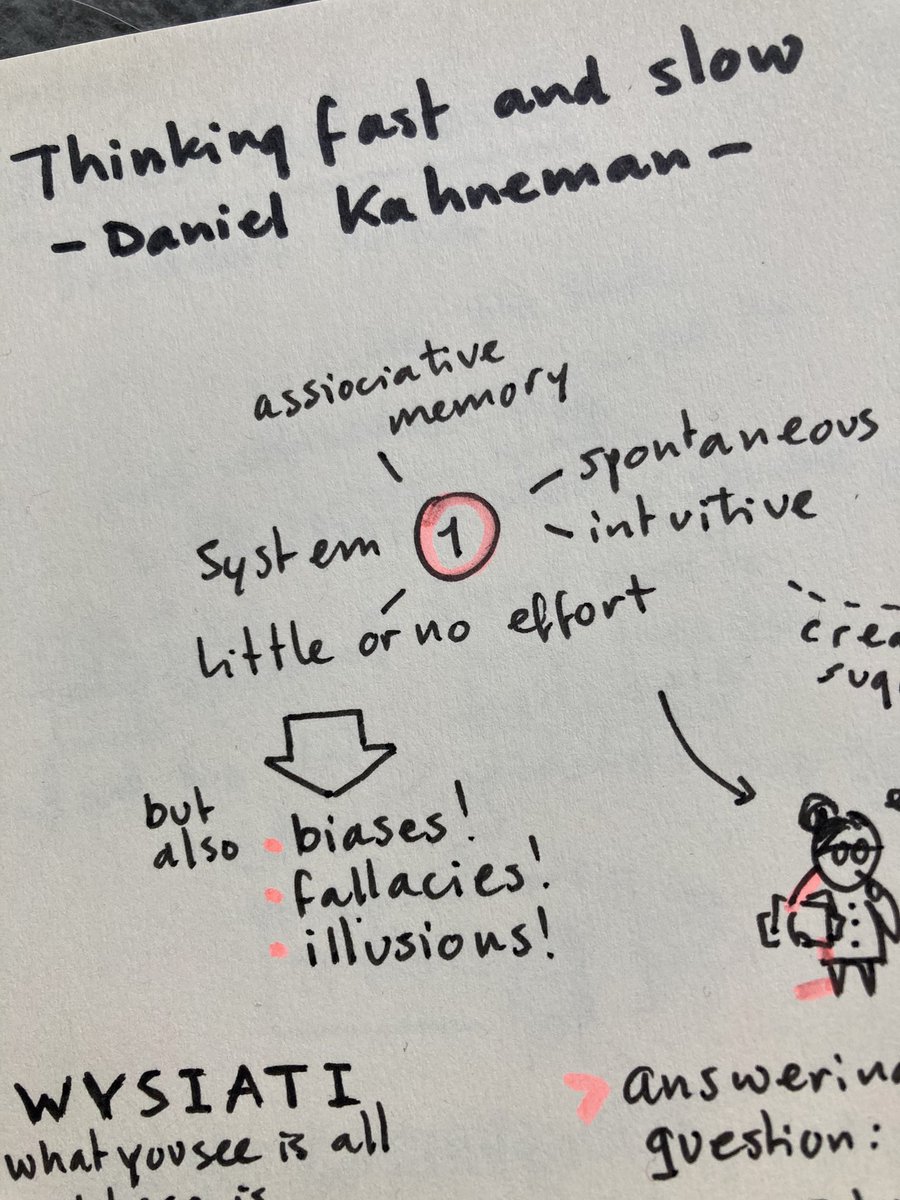 Thinking fast and slow
- Daniel Kahneman -
assiociative
memory
spontaneous
intuitive
System 1
little or no effort
but
also
biases!
fallacies!
illusions!
WYSIATI
what you see is all
is
answering
question: